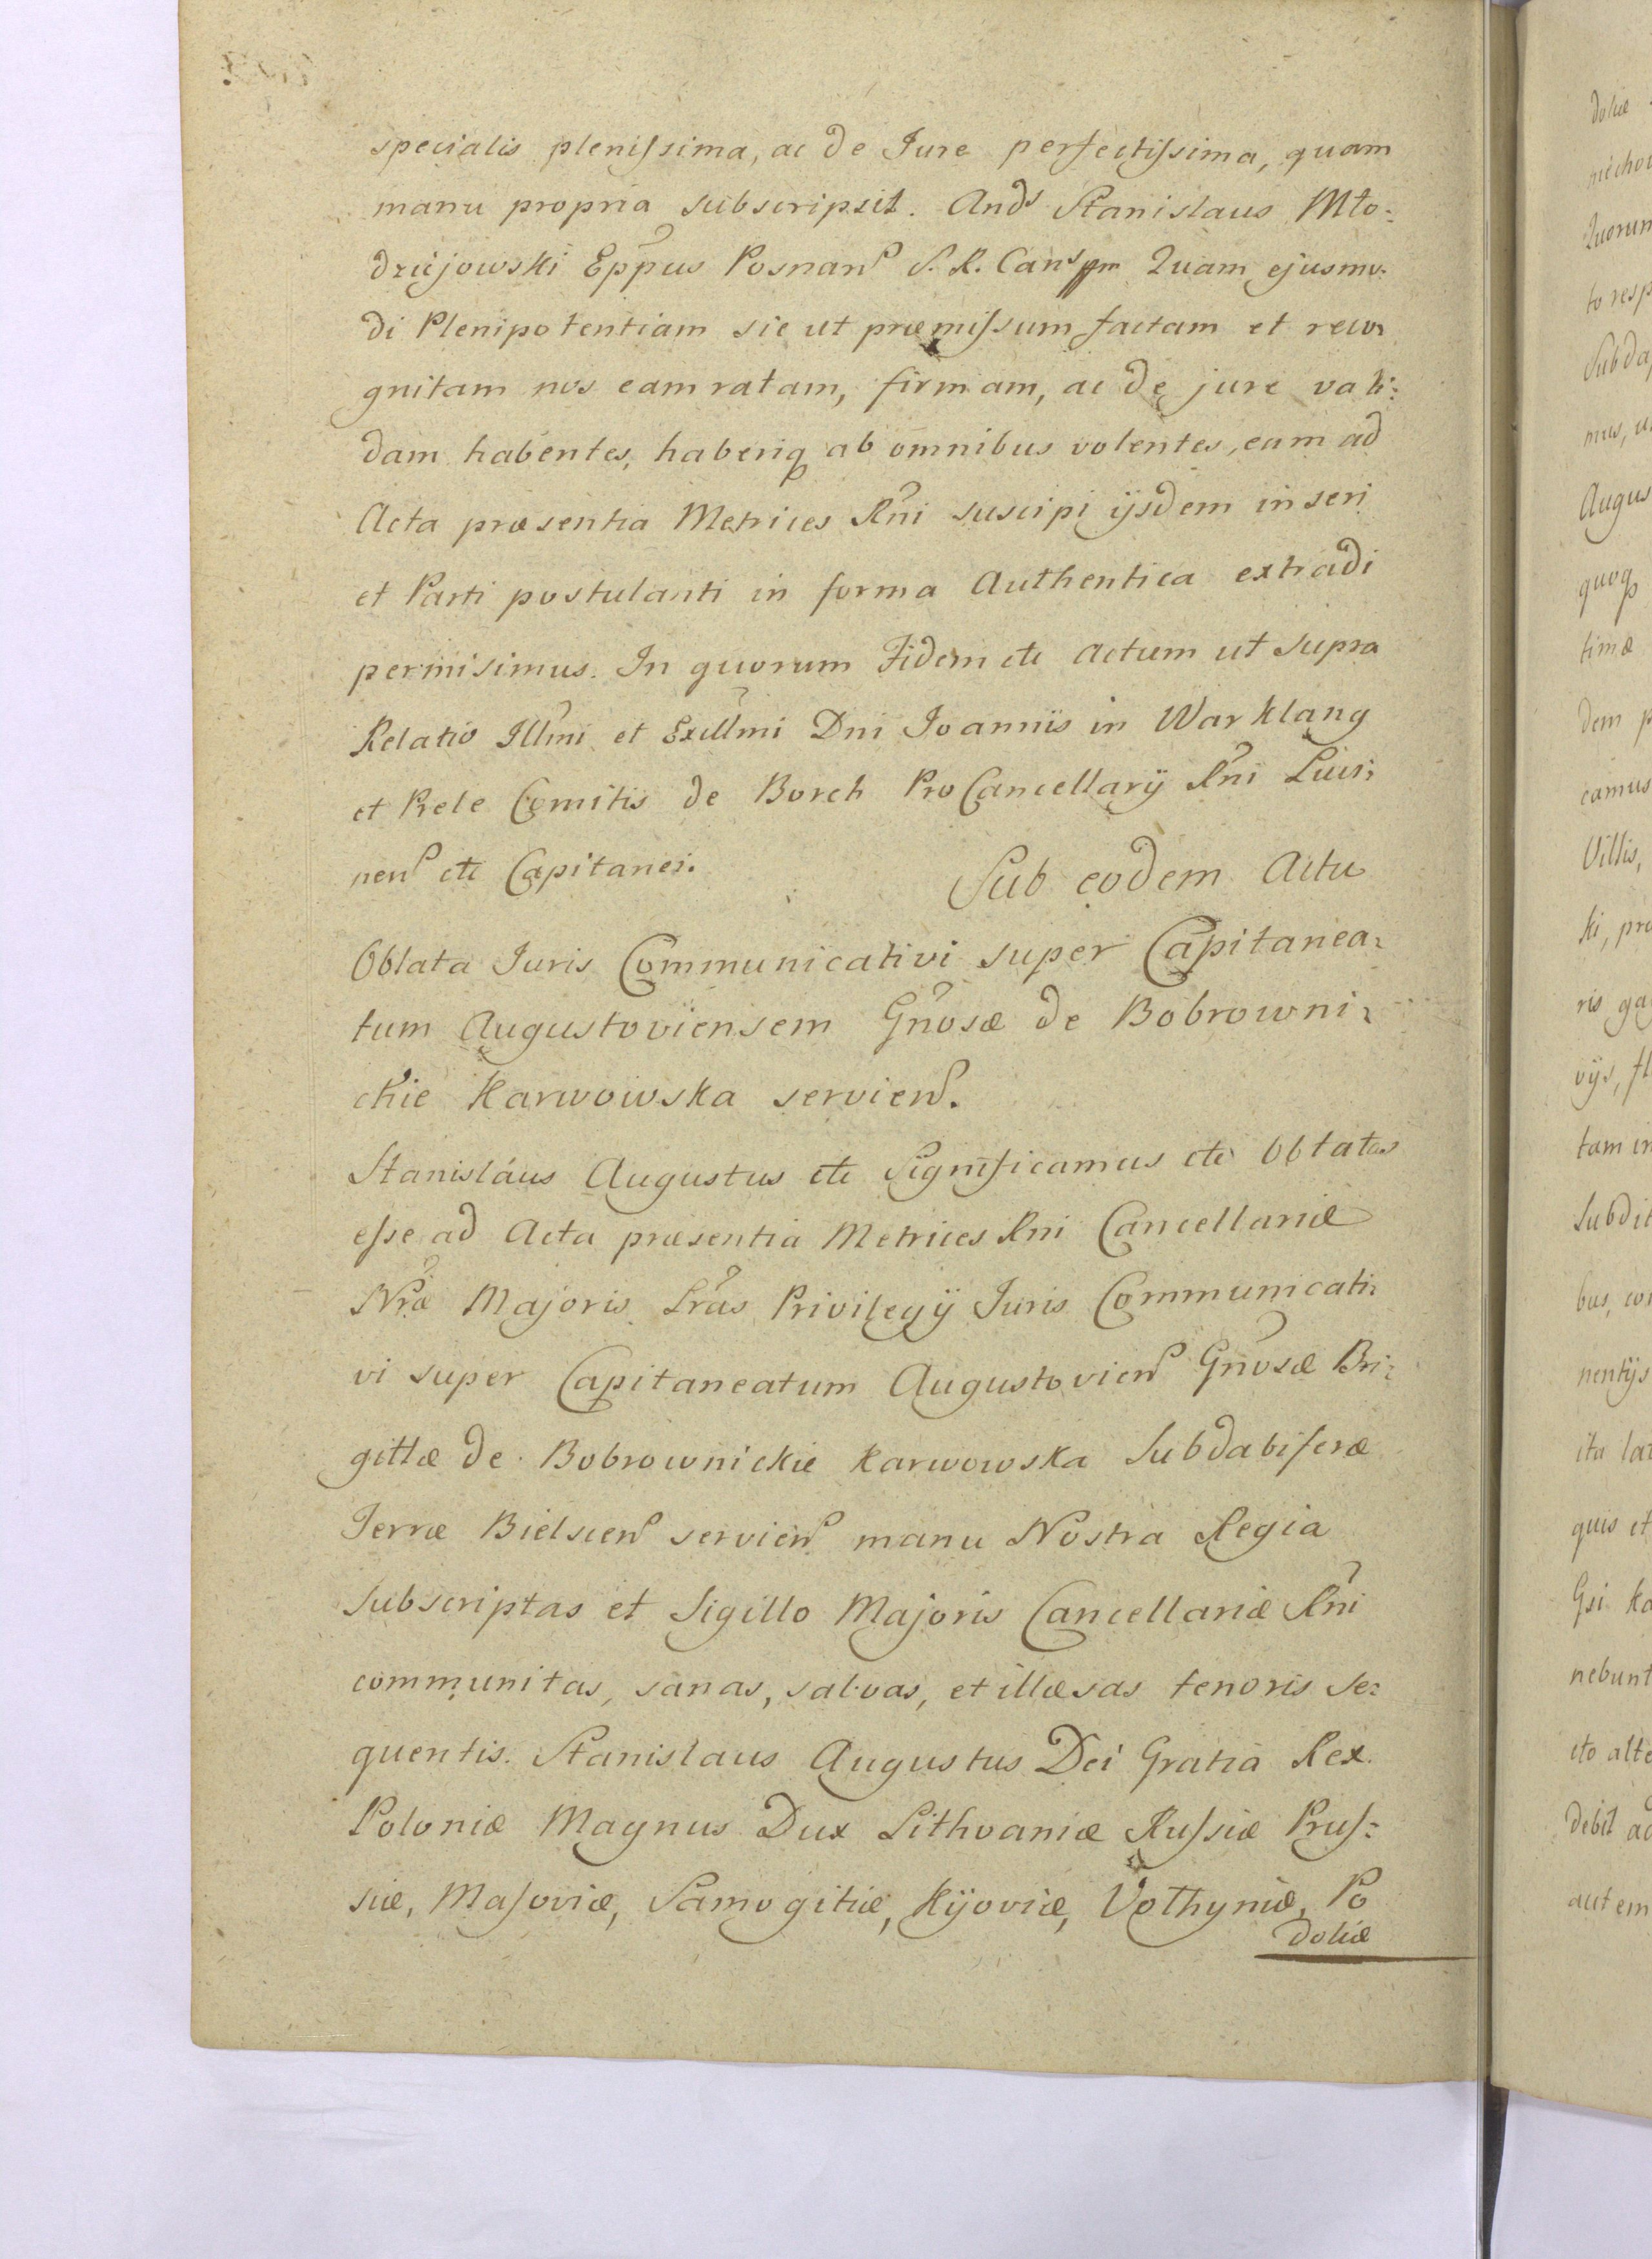 specialis plenissima, ac de Jure perfectissima, quam
manu propria subscripsit. Ands Stanislaus Mło:
dziejowski Eppus Posnan S. R. Can. Quam ejusmo:
di Plenipotentiam sic ut præmissum factam et reco:
gnitam nos eam ratam, firmam, ac de jure vali:
dam habentes, haberiq ab omnibus volentes, eam ad
Acta præsentia Metrices Rni suscipi ijsdem inseri
et Parti postulanti in forma Authentica extradi
permisimus. In quorum Fidem etc Actum ut supra
Relatio Illmi et Excllmi Dni Joannis in Warklang
et Prele Comitis de Borch ProCancellarij Rni Lucis:
nen etc Capitanei.
Sub eodem Actu
Oblata Juris Communicativi super Capitanea:
tum Augustoviensem Gnosæ de Bobrowni:
ckie Karwowska servien.
Stanislaus Augustus etc Significamus etc Oblatas
esse ad Acta præsentia Metrices Rni Cancellariæ
Nræ Majoris Lras Privilegij Juris Communicati:
vi super Capitaneatum Augustovien Gnosæ Bri:
gittæ de Bobrownickie Karwowska Subdabiferæ
Terræ Bielscen servien manu Nostra Regia
subscriptas et Sigillo Majoris Cancellariæ Rni
communitas, sanas, salvas, et illæsas tenoris se:
quentis. Stanislaus Augustus Dei Gratia Rex
Poloniæ Magnus Dux Lithvaniæ Russiæ Prus:
siæ, Masoviæ, Samogitiæ, Kijoviæ, Volhyniæ, Po
doliæ